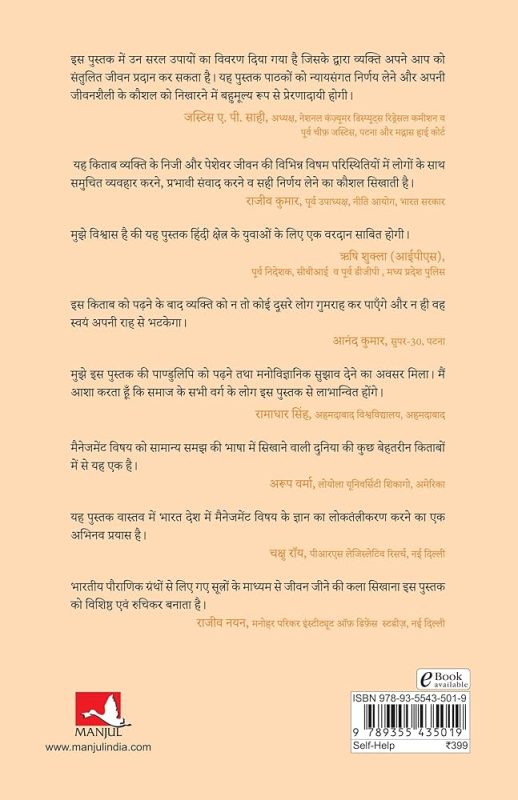 इस पुस्तक में उन सरल उपायों का विवरण दिया गया है जिसके द्वारा व्यक्ति अपने आप को
संतुलित जीवन प्रदान कर सकता है। यह पुस्तक पाठकों को न्यायसंगत निर्णय लेने और अपनी
जीवनशैली के कौशल को निखारने में बहुमूल्य रूप से प्रेरणादायी होगी।
जस्टिस ए. पी. साही, अध्यक्ष, नेशनल कंज़्यूमर डिस्प्यूट्स रिड्रेसल कमीशन व
पूर्व चीफ़ जस्टिस, पटना और मद्रास हाई कोर्ट
यह किताब व्यक्ति के निजी और पेशेवर जीवन की विभिन्न विषम परिस्थितियों में लोगों के साथ
समुचित व्यवहार करने, प्रभावी संवाद करने व सही निर्णय लेने का कौशल सिखाती है।
राजीव कुमार, पूर्व उपाध्यक्ष, नीति आयोग, भारत सरकार
मुझे विश्वास है की यह पुस्तक हिंदी क्षेत्र के युवाओं के लिए एक वरदान साबित होगी।
ऋषि शुक्ला (आईपीएस),
पूर्व निदेशक, सीबीआई व पूर्व डीजीपी, मध्य प्रदेश पुलिस
इस किताब को पढ़ने के बाद व्यक्ति को न तो कोई दूसरे लोग गुमराह कर पाएँगे और न ही वह
स्वयं अपनी राह से भटकेगा।
आनंद कुमार, सुपर-30, पटना
मुझे इस पुस्तक की पाण्डुलिपि को पढ़ने तथा मनोविज्ञानिक सुझाव देने का अवसर मिला। मैं
आशा करता हूँ कि समाज के सभी वर्ग के लोग इस पुस्तक से लाभान्वित होंगे।
रामाधार सिंह, अहमदाबाद विश्वविद्यालय, अहमदाबाद
मैनेजमेंट विषय को सामान्य समझ की भाषा में सिखाने वाली दुनिया की कुछ बेहतरीन किताबों
में से यह एक है।
अरूप वर्मा, लोयोला यूनिवर्सिटी शिकागो, अमेरिका
यह पुस्तक वास्तव में भारत देश में मैनेजमेंट विषय के ज्ञान का लोकतंत्रीकरण करने का एक
अभिनव प्रयास है।
चक्षु रॉय, पीआरएस लेजिस्लेटिव रिसर्च, नई दिल्ली
भारतीय पौराणिक ग्रंथों से लिए गए सूत्रों के माध्यम से जीवन जीने की कला सिखाना इस पुस्तक
को विशिष्ठ एवं रुचिकर बनाता है।
राजीव नयन, मनोहर परिकर इंस्टीट्यूट ऑफ़ डिफ़ेंस स्टडीज़, नई दिल्ली
e Book
available
ISBN 978-93-5543-501-9
9 789355 435019
Self-Help ₹399
MANJUL
www.manjulindia.com